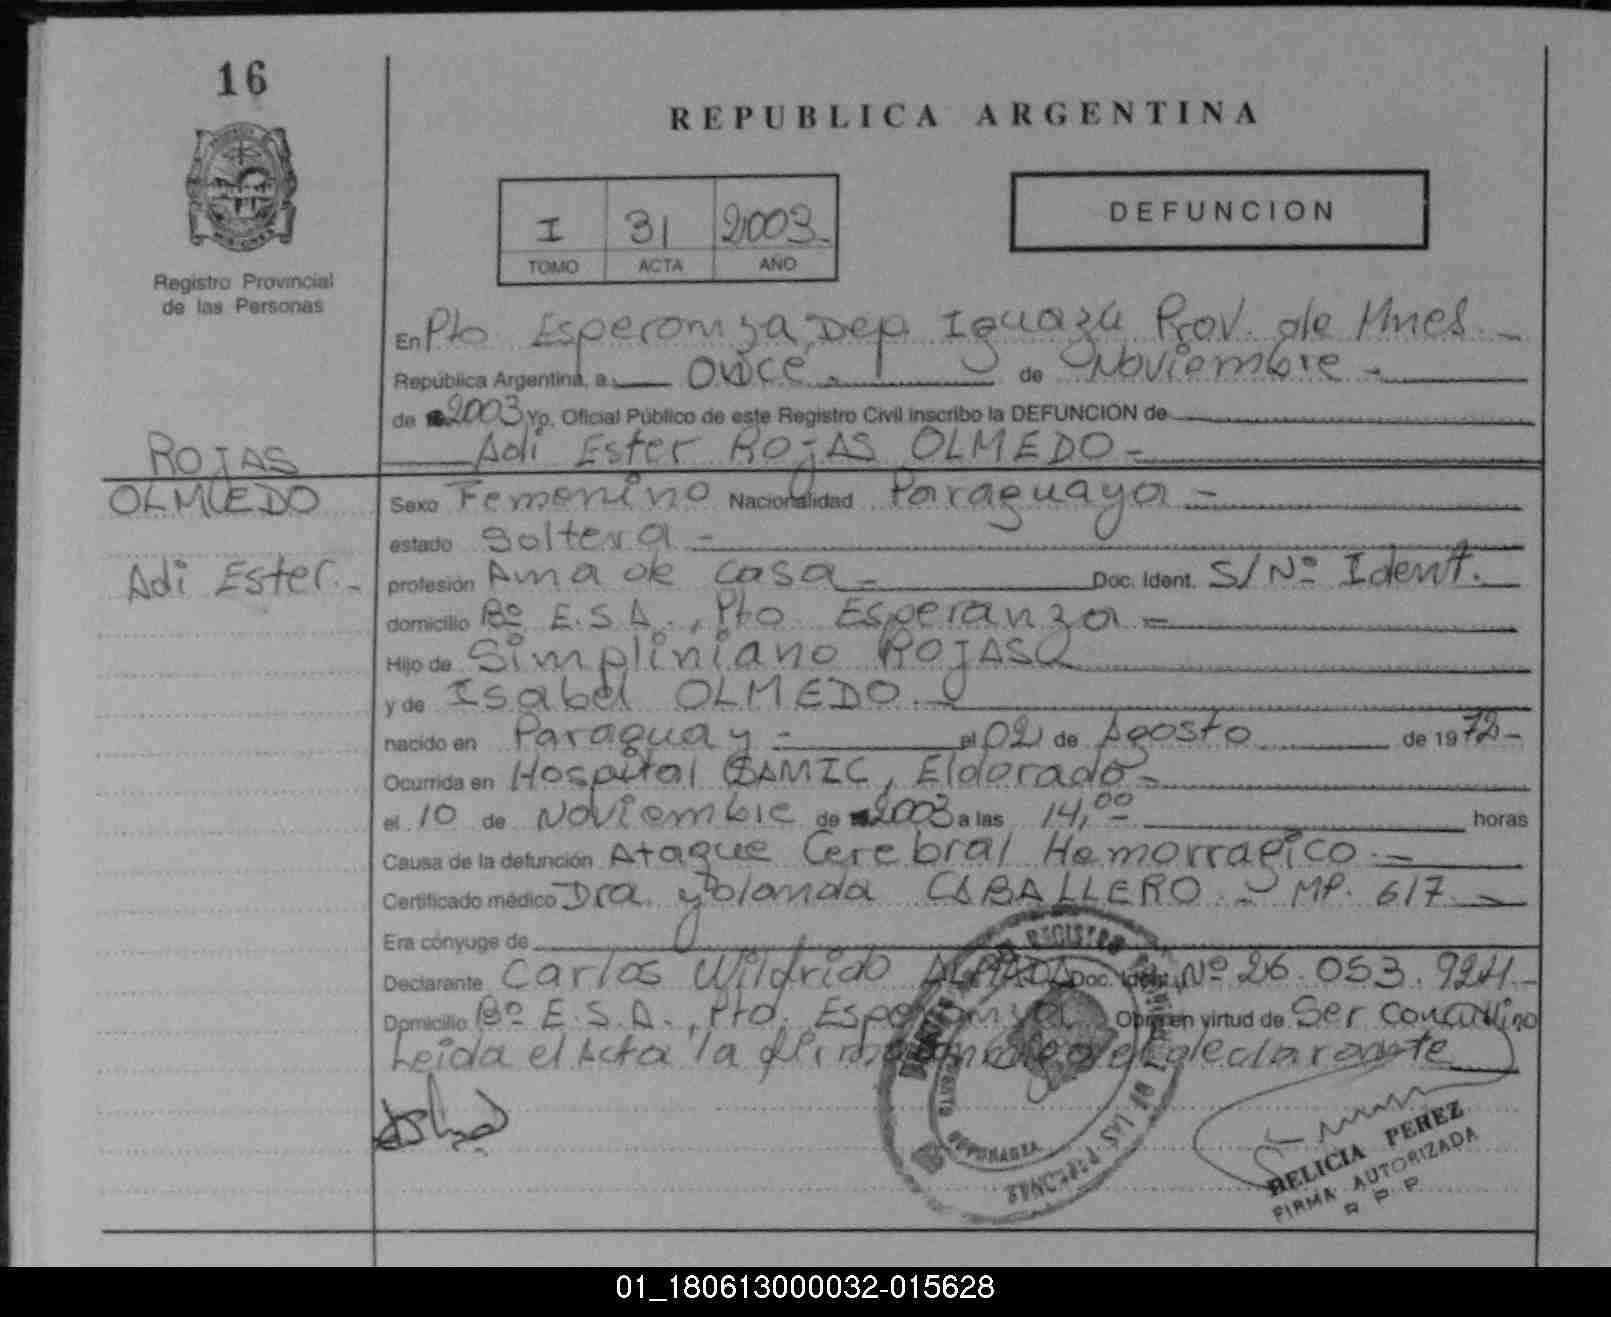 16
REPUBLICA ARGENTINA
I 31 2003-
TOMO ACTA AÑO
DEFUNCION
Registro Provincial
de las Personas
En Pto. Esperanza, Dep. Iguazú Prov. de Mnes.-
República Argentina, a Once.- de Noviembre.-
de 2003 Yo, Oficial Público de este Registro Civil inscribo la DEFUNCION de
Adi Ester ROJAS OLMEDO.-
ROJAS
OLMEDO
Adi Ester.-
Sexo Femenino Nacionalidad Paraguaya.-
estado Soltera.-
profesión Ama de Casa.- Doc. Ident. S/Nº Ident.
domicilio Bº E.S.A., Pto. Esperanza.-
Hijo de Simpliniano ROJAS
y de Isabel OLMEDO.-
nacido en Paraguay.- el 02 de Agosto de 1972-
Ocurrida en Hospital SAMIC, Eldorado.-
el 10 de Noviembre de 2003 a las 14,00 horas
Causa de la defunción Ataque Cerebral Hemorragico.-
Certificado médico Dra. Yolanda CABALLERO.- MP. 617.-
Era cónyuge de
Declarante Carlos Wilfrido ALMADA Doc. Ident. Nº 26.053.924-
Domicilio Bº E.S.A., Pto. Esperanza Obra en virtud de Ser Concuvino
Leida el Acta la firma el declarante
REGISTRO DE LAS PERSONAS
ESPERANZA
BELICIA PEREZ
FIRMA AUTORIZADA
R P P
01_180613000032-015628